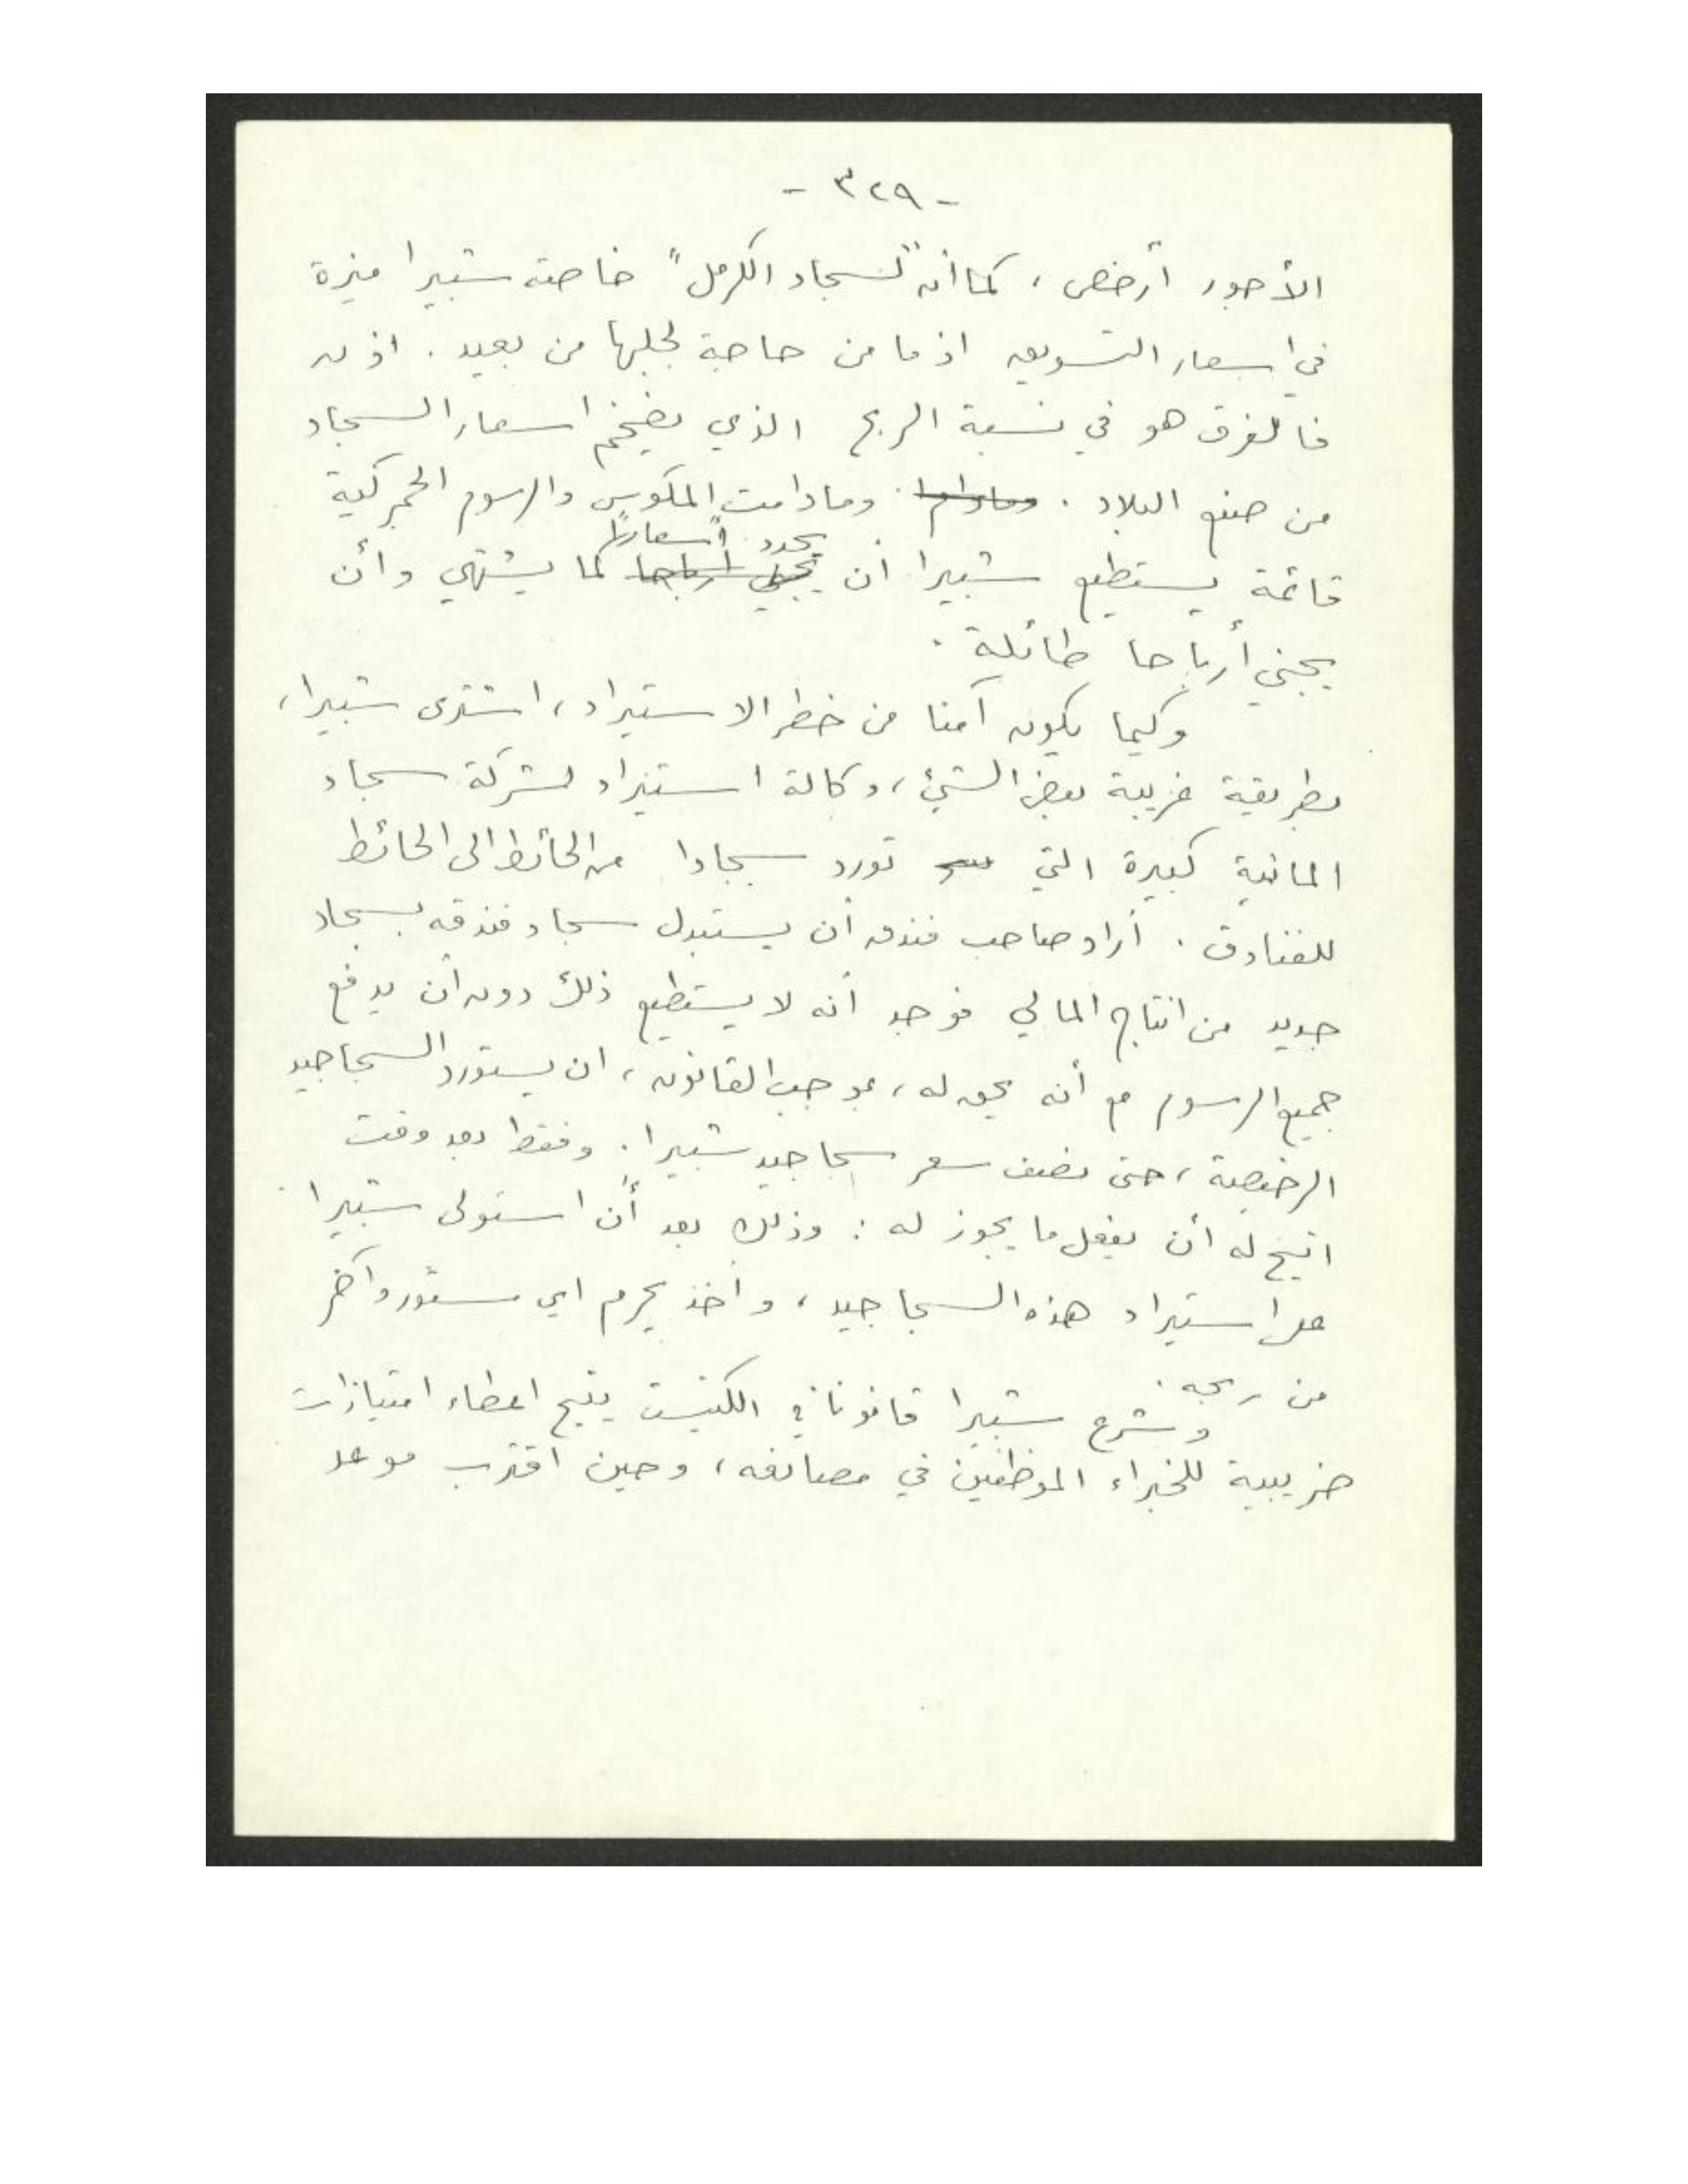 - ٣٢٩ -
الأجور أرخص، كما أن "لسجاد الكرمل" خاصة شبيرا ميزة
في اسعار التسويق اذ ما من حاجة لجلبها من بعيد. اذن
فالفرق هو في نسبة الربح الذي يضخم اسعار السجاد
من صنع البلاد. وما دامت المكوس والرسوم الجمركية
يحدد أسعارًا
قائمة يستطيع شبيرا أن يجني أرباحا كما يشتهي وأن
يجني أرباحا طائلة.
وكيما يكون آمنا من خطر الاستيراد، اشترى شبيرا،
بطريقة غريبة بعض الشيئ، وكالة استيراد لشركة سجاد
المانية كبيرة التي تورد سجادا من الحائط الى الحائط
للفنادق. أراد صاحب فندق أن يستبدل سجاد فندقه بسجاد
جديد من انتاج المالي فوجد أنه لا يستطيع ذلك دون أن يدفع
جميع الرسوم مع أنه يحق له، بموجب القانون، ان يستورد السجاجيد
الرخيصة، حتى نصف سعر سجاجيد شبيرا. وفقط بعد وقت
اتيح له أن يفعل ما يجوز له: وذلك بعد أن استولى شبيرا
على استيراد هذه السجاجيد، وأخذ يحرم اي مستورد آخر
من ربحه.
وشرع شبيرا قانونا في الكنيست يتيح اعطاء امتيازات
ضريبية للخبراء الموظفين في مصانعه، وحين اقترب موعد